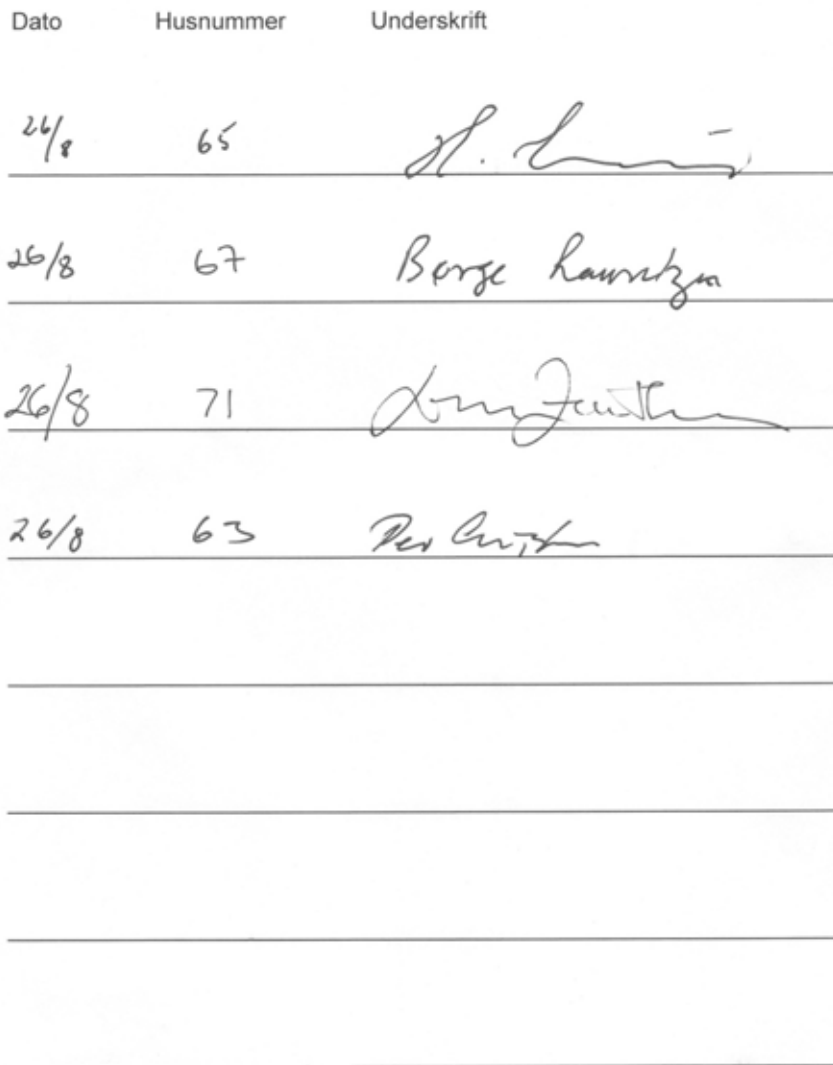 Dato Husnummer Underskrift
26/8 65 H.
26/8 67 Børge Lauritzen
26/8 71
26/8 63 Per